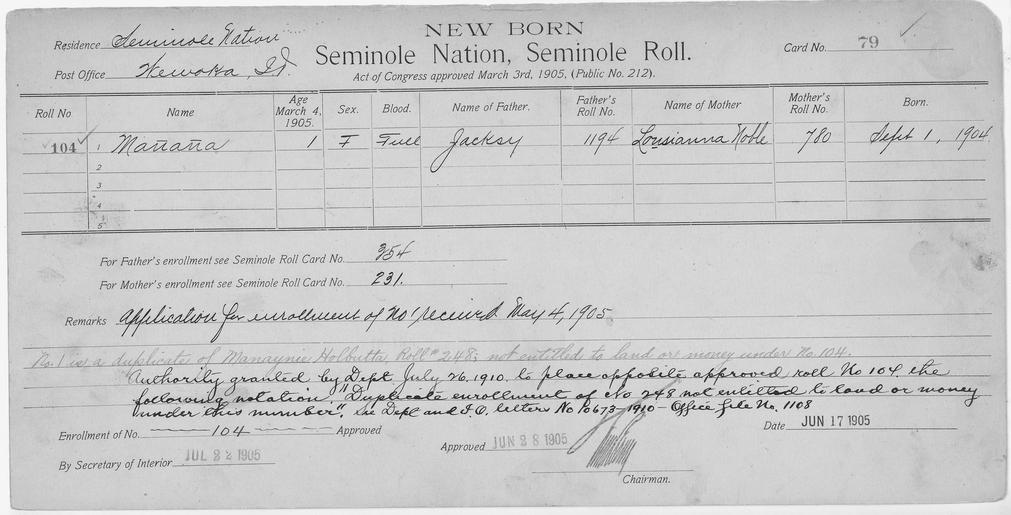 NEW BORN
Residence Seminole Nation
Seminole Nation, Seminole Roll.
Card No. 79
Post Office Wewoka, I.T.
Act of Congress approved March 3rd, 1905, (Public No. 212).
Roll No Name Age March 4, 1905. Sex. Blood. Name of Father. Father's Roll No. Name of Mother Mother's Roll No. Born.
104 1 Mañaña 1 F Full Jacksy 1194 Lousianna Noble 780 Sept 1, 1904
2
3
4
5
For Father's enrollment see Seminole Roll Card No. 354
For Mother's enrollment see Seminole Roll Card No. 231.
Remarks Application for enrollment of No 1 received May 4, 1905
No. 1 is a duplicate of Manaynie Holbutta Roll # 248; not entitled to land or money under No. 104.
"Authority granted by Dept July 26, 1910, to place opposite approved roll No 104 the
following notation: "Duplicate enrollment of No 248 not entitled to land or money
under this number". See Dept and I.O. letters No 10673-1910 - Office file No. 1108
Enrollment of No. 104 Approved
Date JUN 17 1905
Approved JUN 28 1905
By Secretary of Interior JUL 22 1905
Chairman.